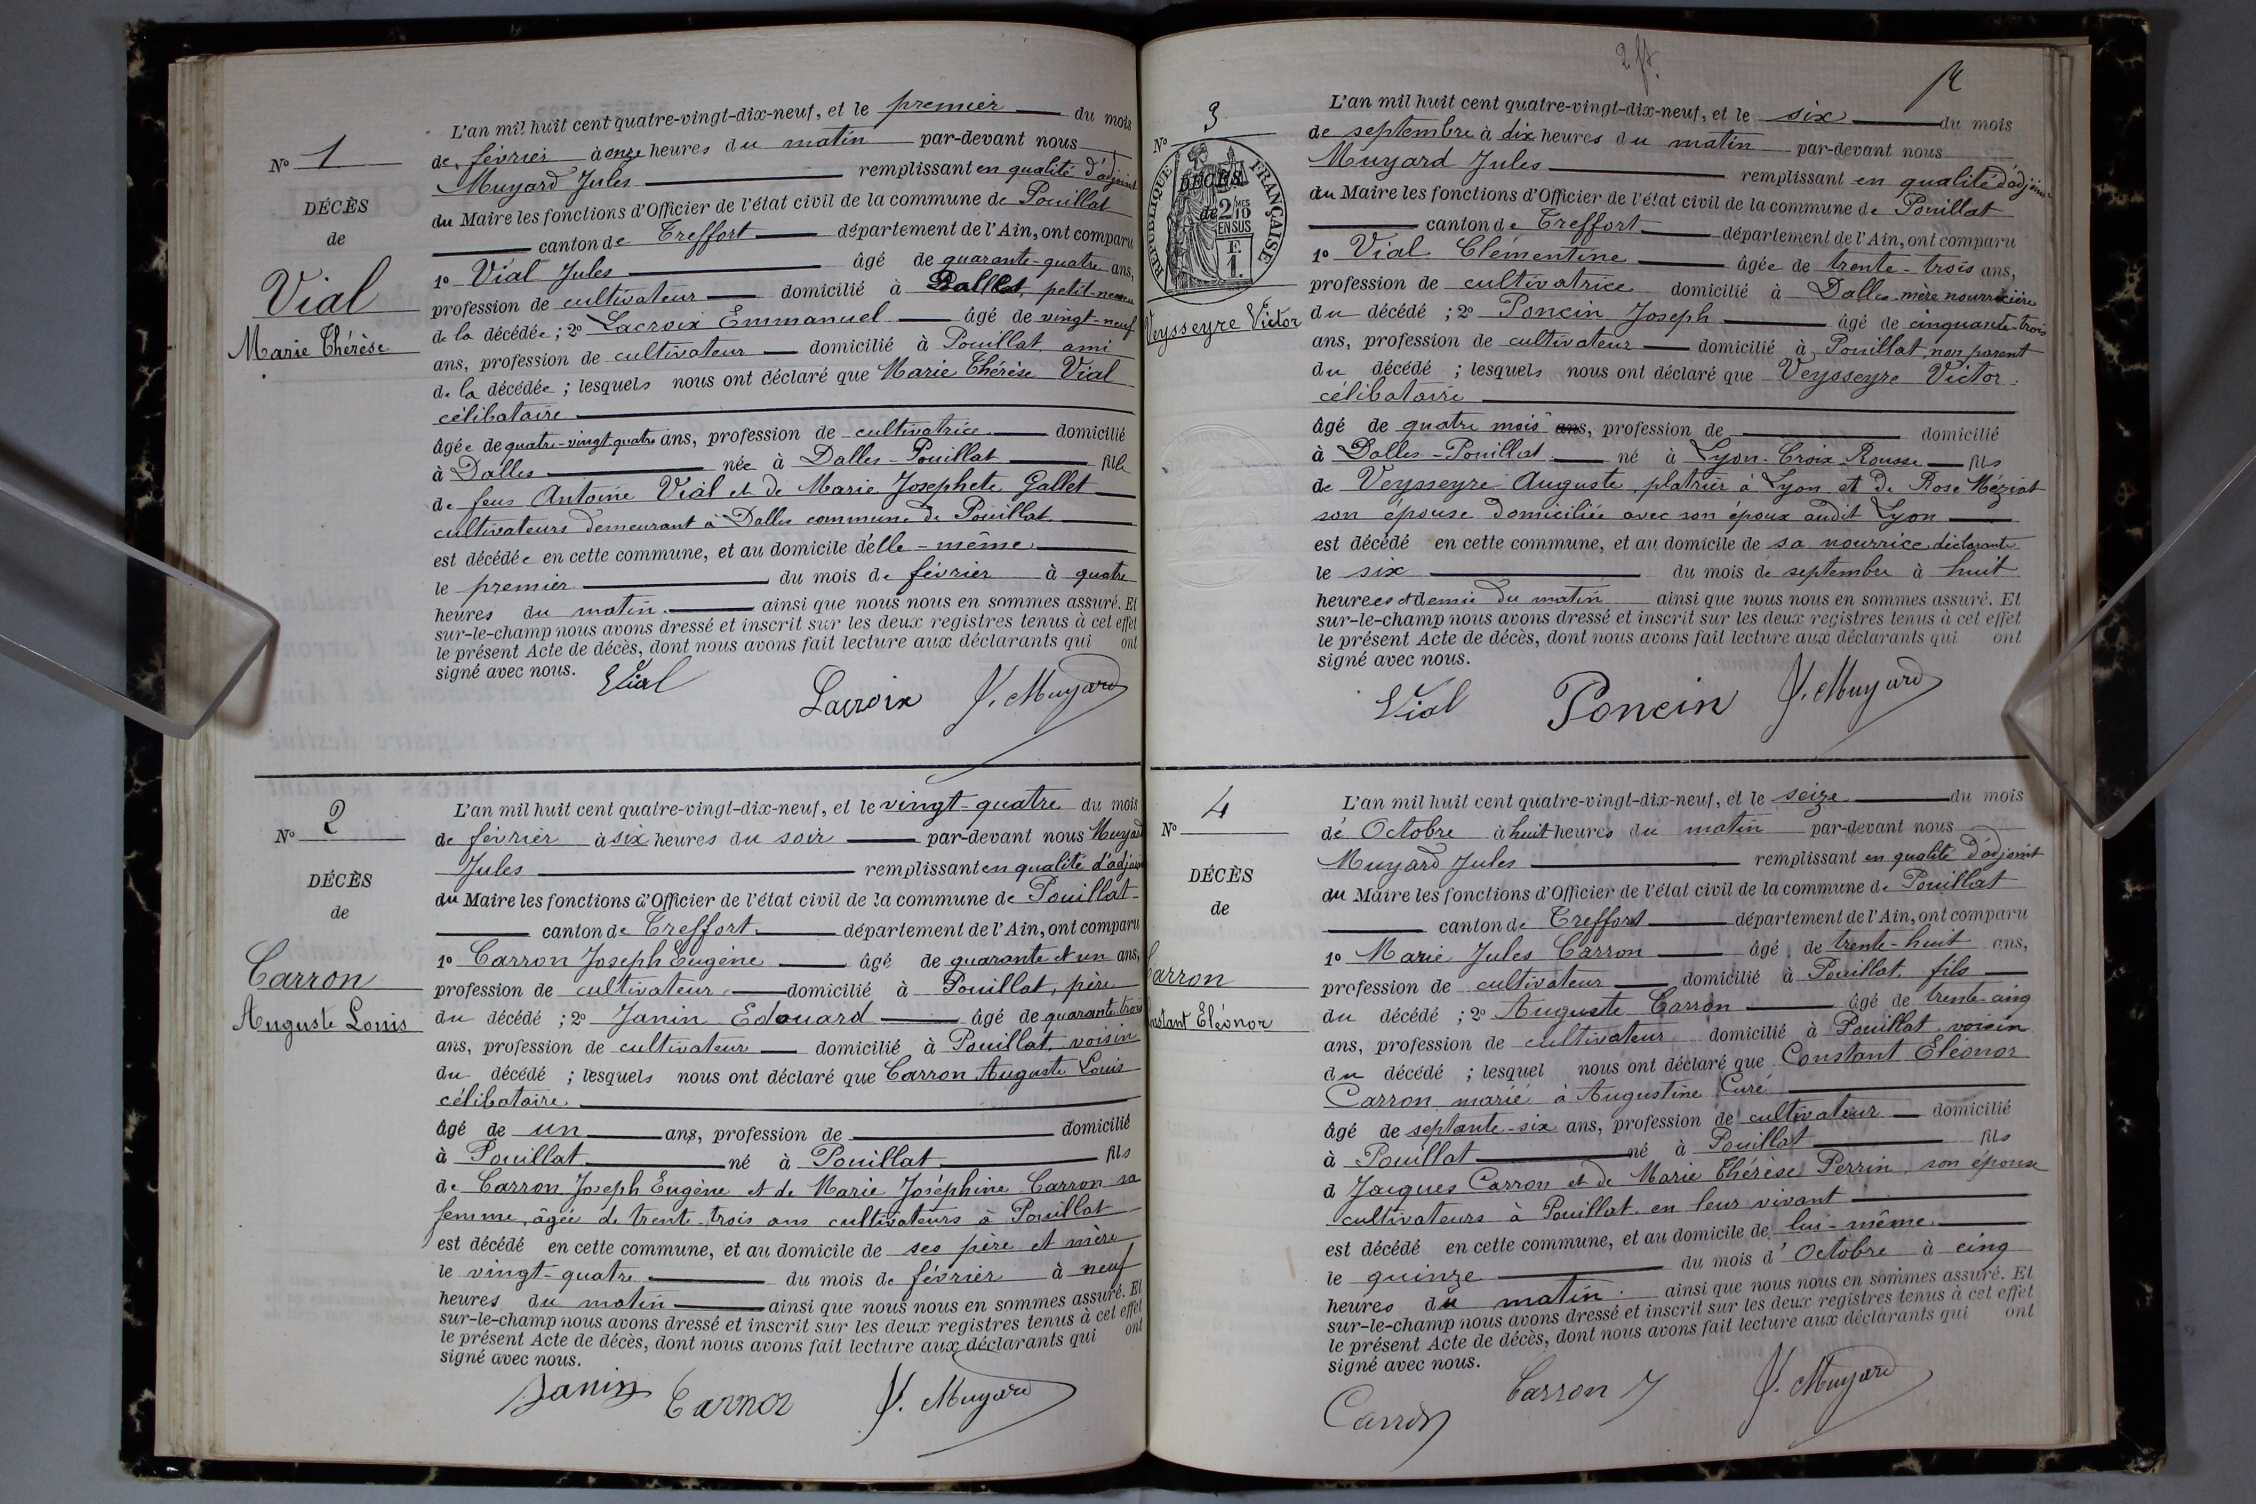 N° 1
DÉCÈS
de
Vial
Marie Thérèse
L'an mil huit cent quatre-vingt-dix-neuf, et le premier du mois
de février à onze heures du matin par-devant nous
Muyard Jules remplissant en qualité d'adjoint
du Maire les fonctions d'Officier de l'état civil de la commune de Pouillat
canton de Treffort département de l'Ain, ont comparu
1° Vial Jules âgé de quarante-quatre ans,
profession de cultivateur domicilié à Dalles, petit-neveu
de la décédée ; 2° Lacroix Emmanuel âgé de vingt-neuf
ans, profession de cultivateur domicilié à Pouillat, ami
de la décédée ; lesquels nous ont déclaré que Marie Thérèse Vial
célibataire
âgée de quatre-vingt-quatre ans, profession de cultivatrice domicilié
à Dalles née à Dalles-Pouillat fille
de feus Antoine Vial et de Marie Josephete Gallet
cultivateurs demeurant à Dalles commune de Pouillat
est décédée en cette commune, et au domicile d'elle-même
le premier du mois de février à quatre
heures du matin. ainsi que nous nous en sommes assuré. Et
sur-le-champ nous avons dressé et inscrit sur les deux registres tenus à cet effet
le présent Acte de décès, dont nous avons fait lecture aux déclarants qui ont
signé avec nous.
Vial Lacroix J. Muyard
N° 2
DÉCÈS
de
Carron
Auguste Louis
L'an mil huit cent quatre-vingt-dix-neuf, et le vingt-quatre du mois
de février à six heures du soir par-devant nous Muyard
Jules remplissant en qualité d'adjoint
du Maire les fonctions d'Officier de l'état civil de la commune de Pouillat
canton de Treffort département de l'Ain, ont comparu
1° Carron Joseph Eugène âgé de quarante et un ans,
profession de cultivateur domicilié à Pouillat, père
du décédé ; 2° Janin Edouard âgé de quarante trois
ans, profession de cultivateur domicilié à Pouillat, voisin
du décédé ; lesquels nous ont déclaré que Carron Auguste Louis
célibataire.
âgé de un ans, profession de domicilié
à Pouillat né à Pouillat fils
de Carron Joseph Eugène et de Marie Joséphine Carron sa
femme, âgée de trente-trois ans cultivateurs à Pouillat
est décédé en cette commune, et au domicile de ses père et mère
le vingt-quatre du mois de février à neuf
heures du matin ainsi que nous nous en sommes assuré. Et
sur-le-champ nous avons dressé et inscrit sur les deux registres tenus à cet effet
le présent Acte de décès, dont nous avons fait lecture aux déclarants qui ont
signé avec nous.
Janin Carron J. Muyard
2 ft.
N° 3
DÉCÈS
de
RÉPUBLIQUE FRANÇAISE
2/10 EN SUS
F. 1.
Veysseyre Victor
L'an mil huit cent quatre-vingt-dix-neuf, et le six du mois
de septembre à dix heures du matin par-devant nous
Muyard Jules remplissant en qualité d'adjoint
du Maire les fonctions d'Officier de l'état civil de la commune de Pouillat
canton de Treffort département de l'Ain, ont comparu
1° Vial Clémentine âgée de trente-trois ans,
profession de cultivatrice domicilié à Dalles mère nourricière
du décédé ; 2° Poncin Joseph âgé de cinquante-trois
ans, profession de cultivateur domicilié à Pouillat, non parent
du décédé ; lesquels nous ont déclaré que Veysseyre Victor
célibataire
âgé de quatre mois ans, profession de domicilié
à Dalles-Pouillat né à Lyon-Croix-Rousse fils
de Veysseyre Auguste, platrier à Lyon et de Rose Méziat
son épouse domiciliée avec son époux audit Lyon
est décédé en cette commune, et au domicile de sa nourrice déclarante
le six du mois de septembre à huit
heures et demie du matin ainsi que nous nous en sommes assuré. Et
sur-le-champ nous avons dressé et inscrit sur les deux registres tenus à cet effet
le présent Acte de décès, dont nous avons fait lecture aux déclarants qui ont
signé avec nous.
Vial Poncin J. Muyard
N° 4
DÉCÈS
de
Carron
Constant Éléonor
L'an mil huit cent quatre-vingt-dix-neuf, et le seize du mois
dé Octobre à huit heures du matin par-devant nous
Muyard Jules remplissant en qualité d'adjoint
du Maire les fonctions d'Officier de l'état civil de la commune de Pouillat
canton de Treffort département de l'Ain, ont comparu
1° Marie Jules Carron âgé de trente-huit ans,
profession de cultivateur domicilié à Pouillat, fils
du décédé ; 2° Auguste Carron âgé de trente-cinq
ans, profession de cultivateur domicilié à Pouillat voisin
du décédé ; lesquel nous ont déclaré que Constant Eléonor
Carron marié à Augustine Curé
âgé de septante-six ans, profession de cultivateur domicilié
à Pouillat né à Pouillat fils
d Jacques Carron et de Marie Thérèse Perrin, son épouse
cultivateurs à Pouillat en leur vivant
est décédé en cette commune, et au domicile de lui-même
le quinze du mois d'Octobre à cinq
heures du matin. ainsi que nous nous en sommes assuré. Et
sur-le-champ nous avons dressé et inscrit sur les deux registres tenus à cet effet
le présent Acte de décès, dont nous avons fait lecture aux déclarants qui ont
signé avec nous.
Carron Carron J J. Muyard